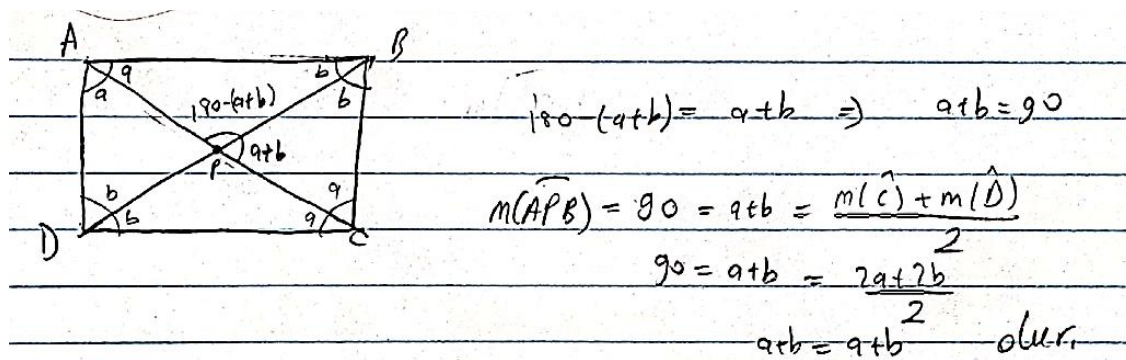 A
B
a
a
b
b
180-(a+b)
P
a+b
b
b
a
a
D
C
180-(a+b) = a+b => a+b = 90
m(APB) = 90 = a+b = m(Ĉ) + m(D̂)
2
90 = a+b = 2a+2b
2
a+b = a+b olur.